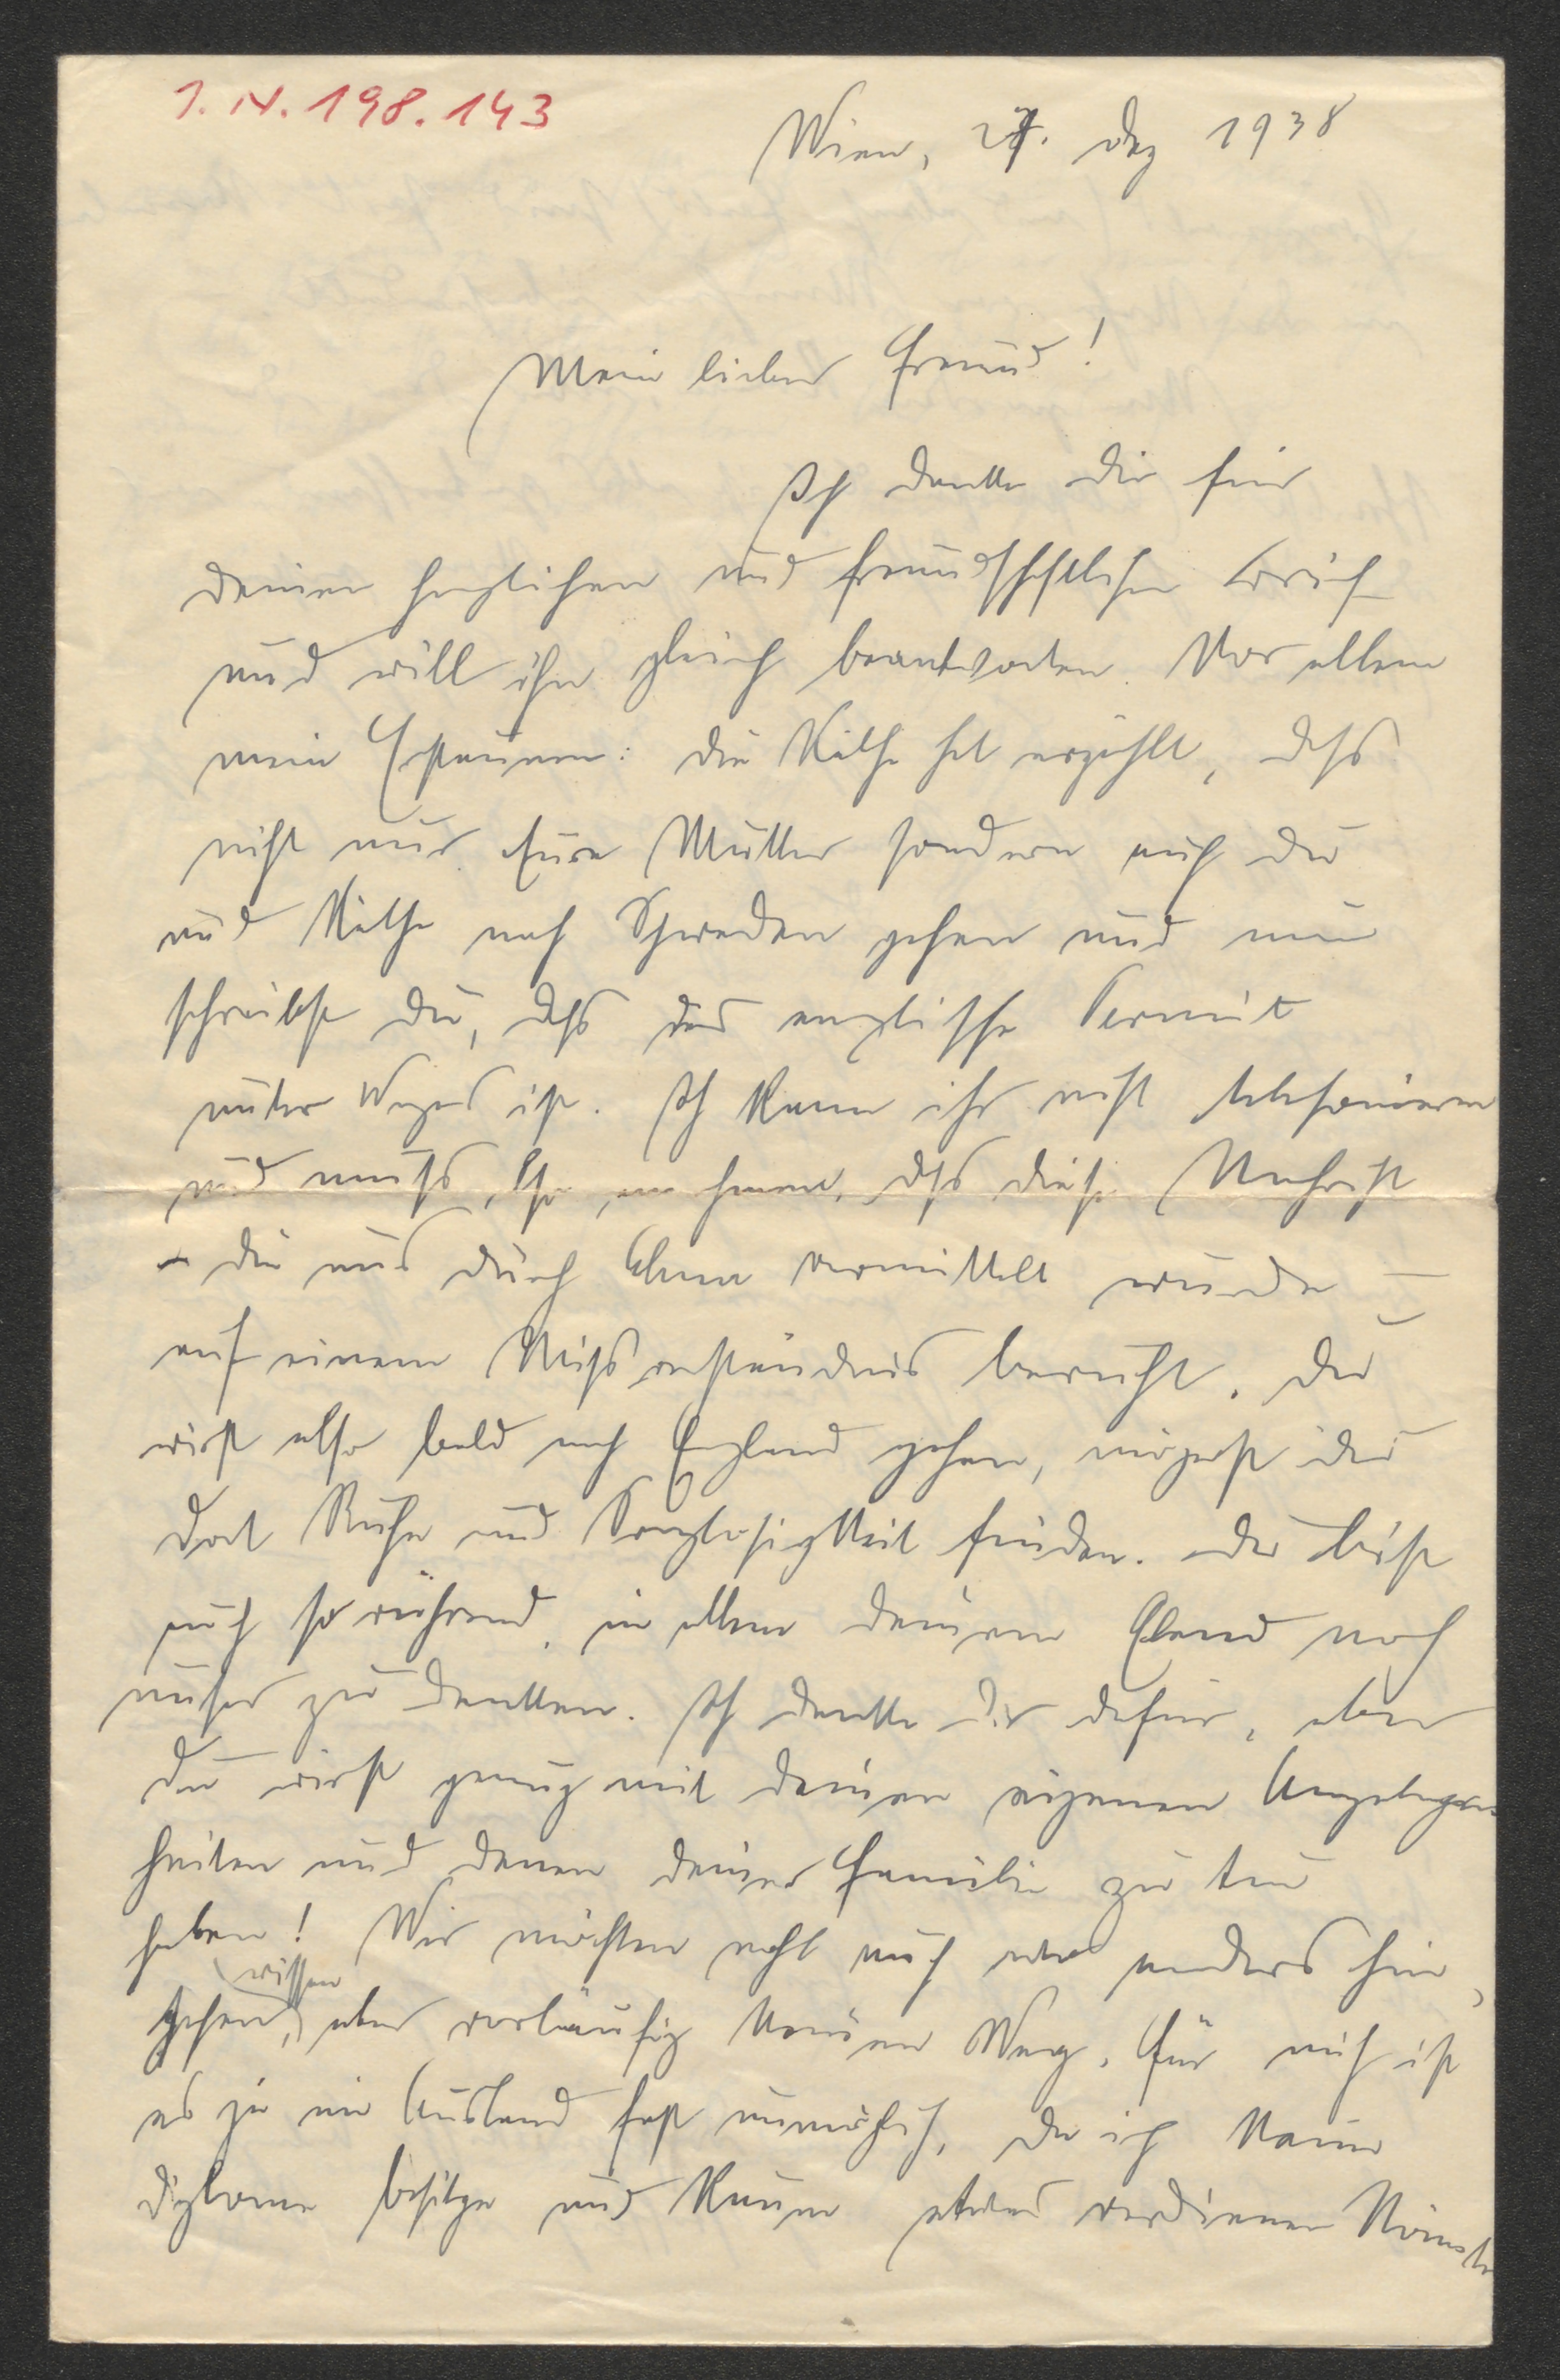 I.N. 198.143
Wien, 27. Dez 1938
Mein lieber Freund!
Ich danke dir für
deinen herzlichen und freundschaftlichen Brief
und will ihn gleich beantworten. Vor allem
mein Erstaunen: die Käthe hat erzählt, dass
nicht nur eure Mutter sondern auch du
und Käthe nach Schweden gehen und nun
schreibst du, dass das englische Permit
unter Wegs ist. Ich kann ihr nicht telefonieren
und muss also annehmen, dass diese Nachricht
– die uns durch vermittelt wurde –
auf einem Missverständnis beruht. Du
wirst also bald nach England gehen, mögest du
dort Ruhe und Sorglosigkeit finden. Du bist
auch so rührend, in allem deinem Elend noch
unser zu denken. Ich danke dir dafür, aber
du wirst genug mit deinen eigenen Angelegen
heiten und denen deiner Familie zu tun
haben! Wir möchten wohl auch wo anders hin
gehen, wissen aber vorläufig keinen Weg. Für mich ist
es ja im Ausland fast unmöglich, da ich keine
Diplome besitze und kaum etwas verdienen könnte